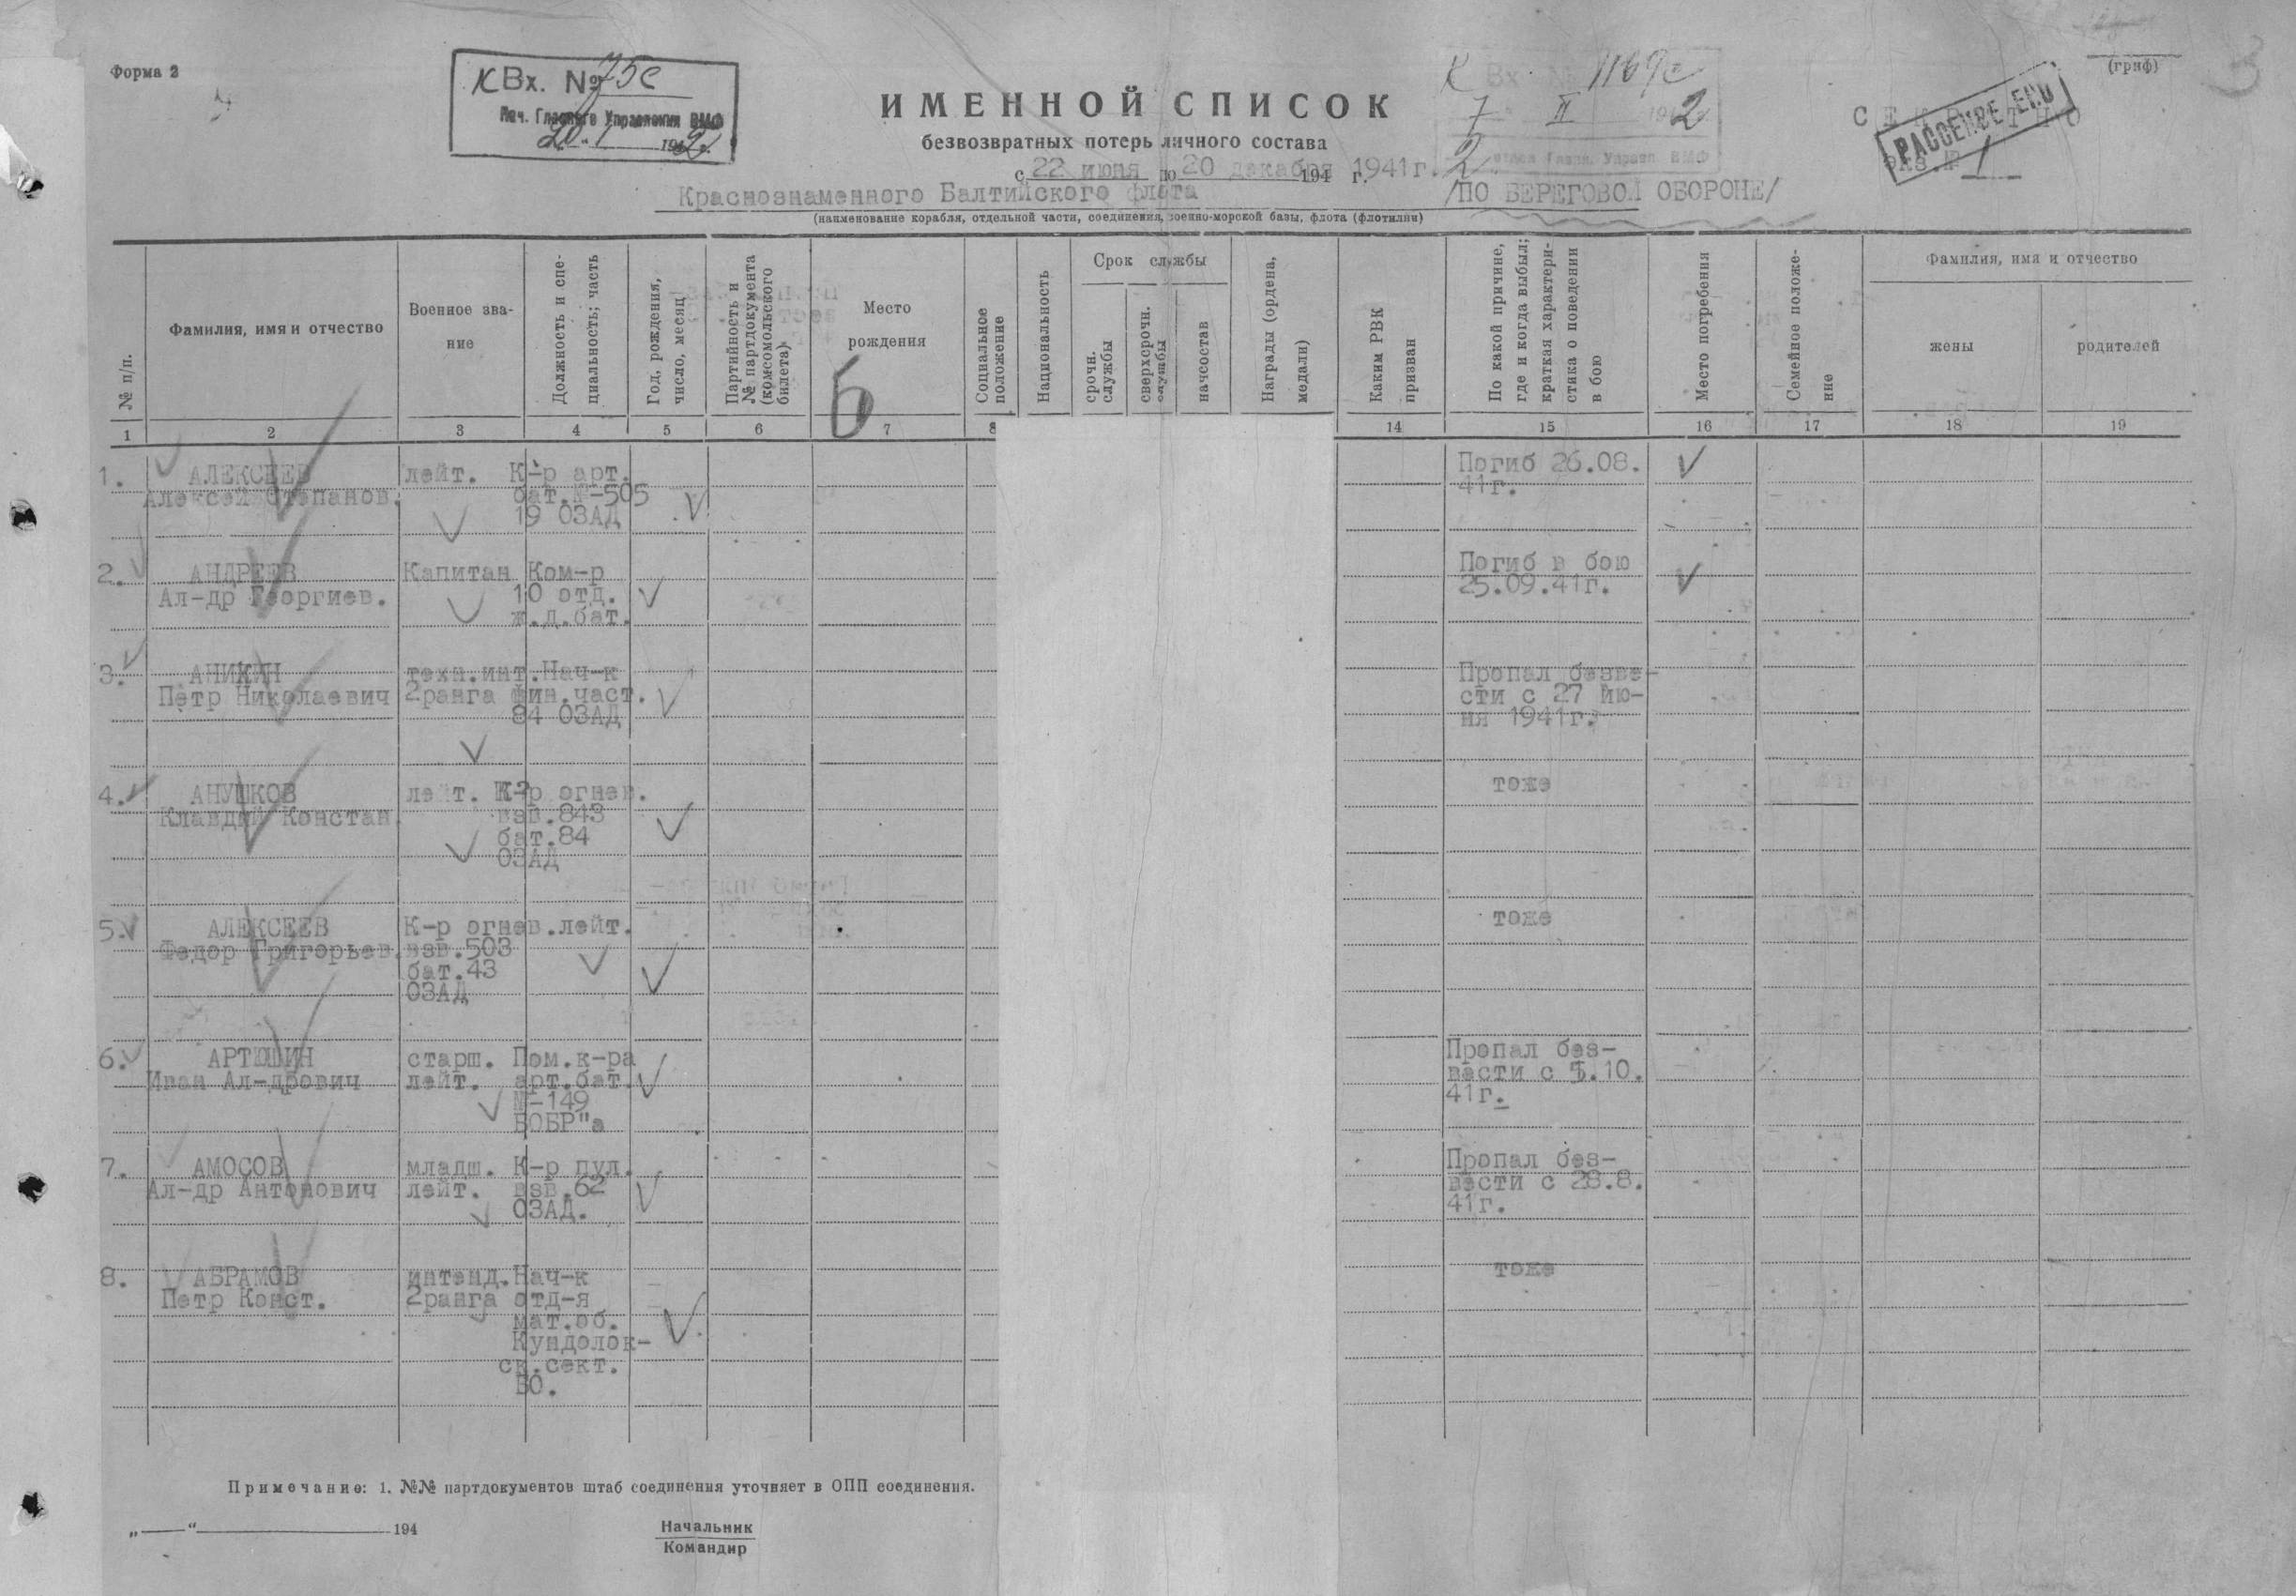 Форма 2
КВх. № 75с
Нач. Главного Управления ВМФ
20. 1 1942
К Вх № 1169с
7 II 1942
Главн. Управл ВМФ
(гриф)
3
СЕКРЕТНО
РАССЕКРЕЧЕНО
экз.№ 1
ИМЕННОЙ СПИСОК
безвозвратных потерь личного состава
с 22 июня по 20 декабря 194 г. 1941г.
Краснознаменного Балтийского флота /ПО БЕРЕГОВОЙ ОБОРОНЕ/
(наименование корабля, отдельной части, соединения, военно-морской базы, флота (флотилии)
№ п/п.
Фамилия, имя и отчество
Военное зва-
ние
Должность и спе-
циальность; часть
Год, рождения,
число, месяц
Партийность и
№ партдокумента
(комсомольского
билета)
Место
рождения
6
Социальное
положение
Национальность
Срок службы
срочн.
службы
сверхсрочн.
службы
начсостав
Награды (ордена,
медали)
Каким РВК
призван
По какой причине,
где и когда выбыл;
краткая характери-
стика о поведении
в бою
Место погребения
Семейное положе-
ние
Фамилия, имя и отчество
жены
родителей
1 2 3 4 5 6 7 8 14 15 16 17 18 19
1. АЛЕКСЕЕВ лейт. К-р арт. Погиб 26.08.
Алексей Степанов. бат.№-505 41г.
19 ОЗАД
2. АНДРЕЕВ Капитан Ком-р Погиб в бою
Ал-др Георгиев. 10 отд. 25.09.41г.
ж.д.бат.
3. АНИКИН техн.инт.Нач-к Пропал безве-
Петр Николаевич 2ранга фин.част. сти с 27 Ию-
84 ОЗАД ня 1941г.
4. АНУШКОВ лейт. К-р огнев. тоже
Клавдий Констан. взв.843
бат.84
ОЗАД
5. АЛЕКСЕЕВ К-р огнев.лейт. тоже
Федор Григорьев. взв.503
бат.43
ОЗАД
6. АРТЮШИН старш. Пом.к-ра Пропал без-
Иван Ал-дрович лейт. арт.бат. вести с 1.10.
№-149 41г.
БОБР"а
7. АМОСОВ младш. К-р пул. Пропал без-
Ал-др Антонович лейт. взв.62 вести с 28.8.
ОЗАД. 41г.
8. АБРАМОВ интенд.Нач-к тоже
Петр Конст. 2ранга отд-я
мат.об.
Кундолок-
ск.сект.
БО.
Примечание: 1. №№ партдокументов штаб соединения уточняет в ОПП соединения.
„ “ 194
Начальник
Командир